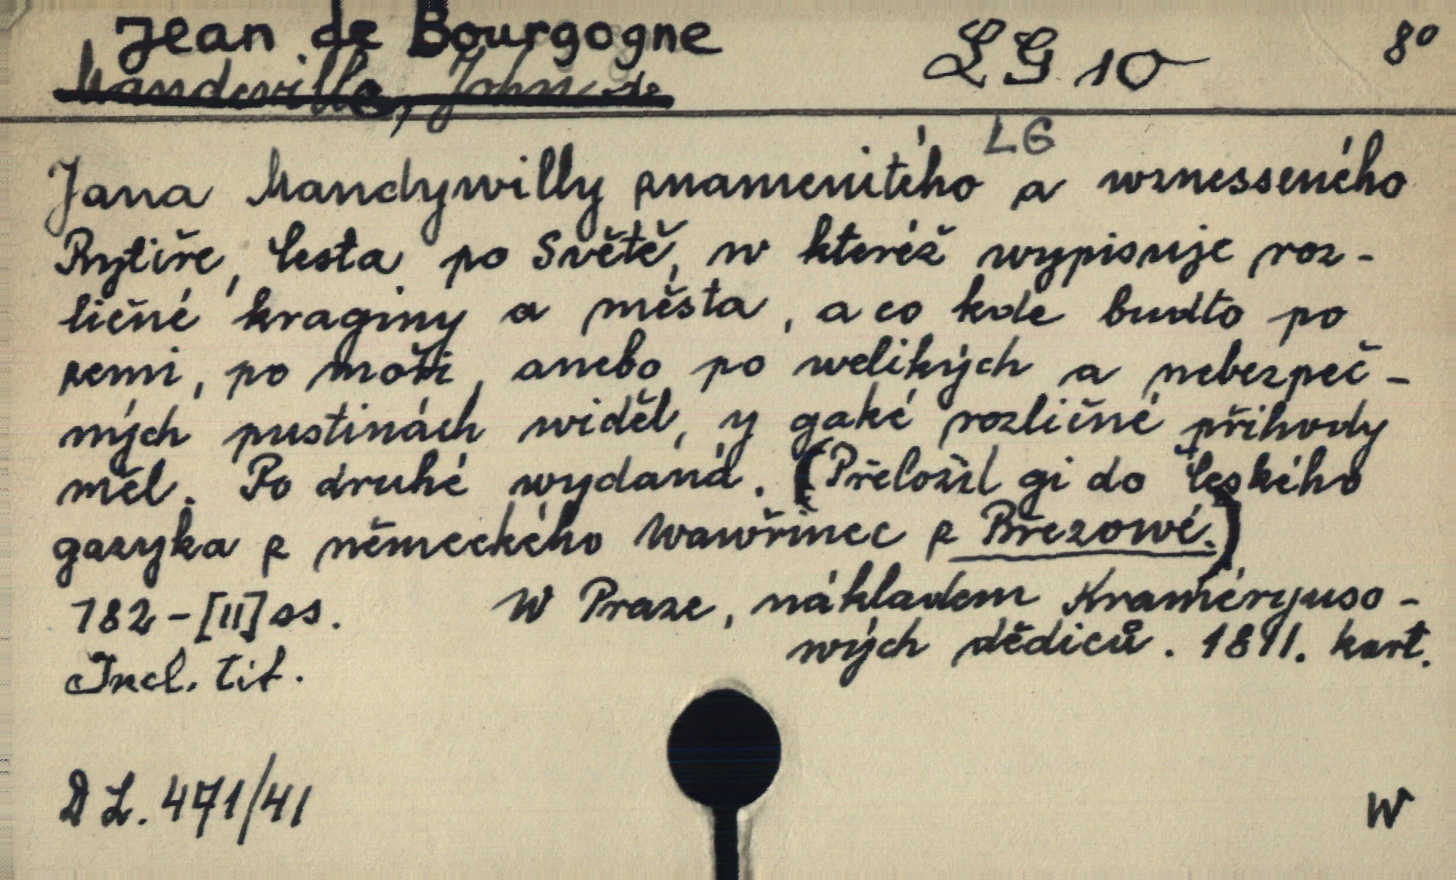 Jean de Bourgogne
Mandeville, John de
LG 10
8°
LG
Jana Mandywilly znamenitého a wznesseného
Rytiře, Cesta po Světě, w kteréž wypisuje roz-
ličné kraginy a města, a co kde budto po
zemi, po moři, anebo po welikých a nebezpeč-
ných pustinách widěl, y gaké rozličné přihody
měl. Po druhé wydaná. (Přeložil gi do Českého
gazyka z německého Wawřinec z Březowé.)
182-[II] ss. W Praze, nákladem Kraméryuso-
wých dědiců. 1811. kart.
Incl. tit.
D L. 471/41
W